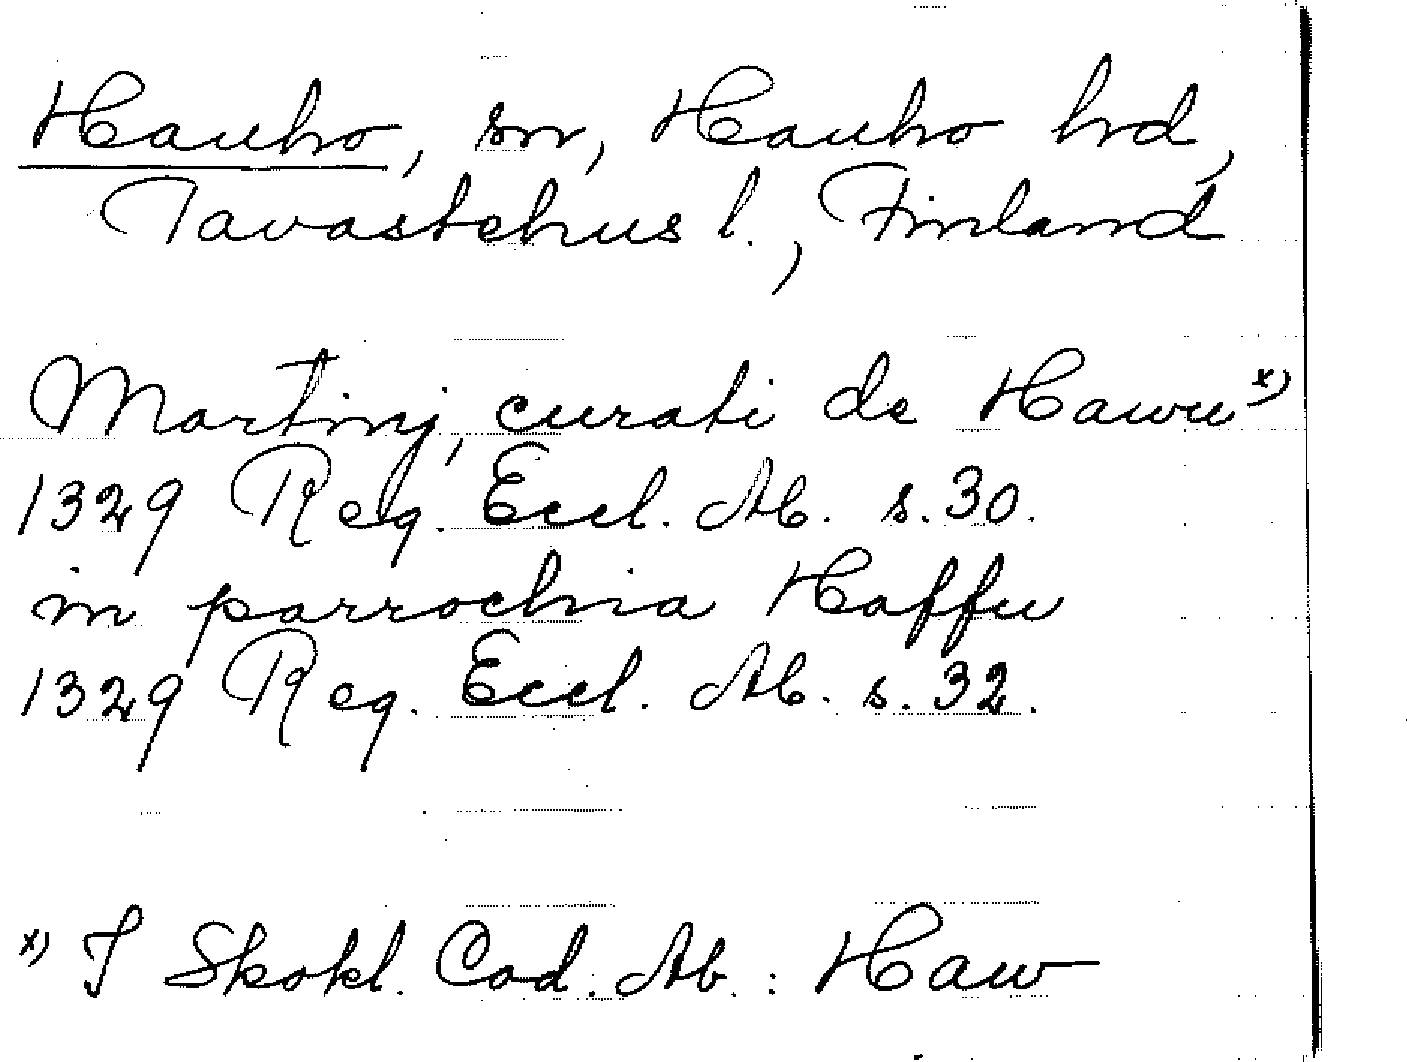 Hauho, sn, Hauho hrd,
Tavastehus l., Finland
Martinj, curati de Hawu x)
1329 Reg. Eccl. Ab. s. 30.
in parrochia Haffu
1329 Reg. Eccl. Ab. s. 32.
x) I Skokl. Cod. Ab.: Haw